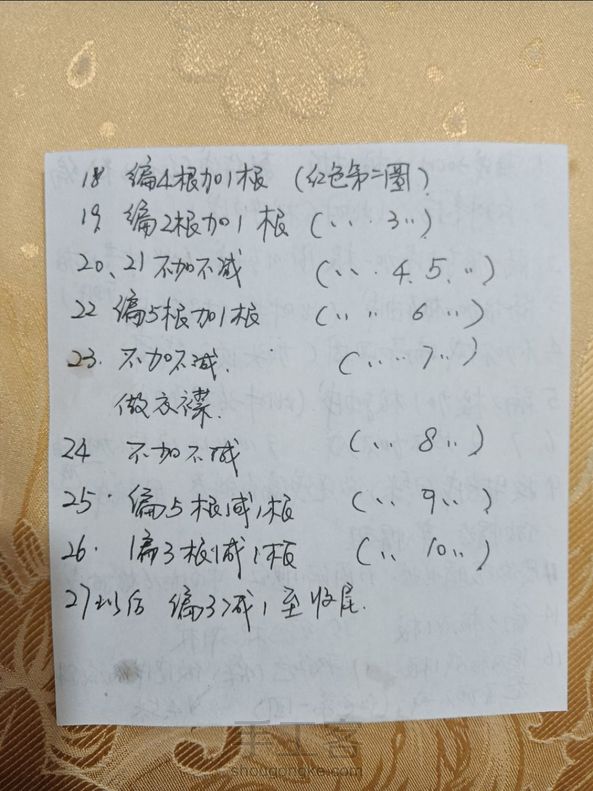 18 编4根加1根 (红色第二圈)
19 编2根加1根 (〃 〃 3〃)
20、21 不加不减 (〃 〃 4、5、〃)
22 编5根加1根 (〃 〃 6 〃)
23. 不加不减. (〃 〃 7〃)
做衣襟.
24 不加不减 (〃 8〃)
25. 编5根减1根 (〃 9〃)
26. 编3根减1根 (〃 10〃)
27以后 编3减1至收尾.
手工客
shougongke.com